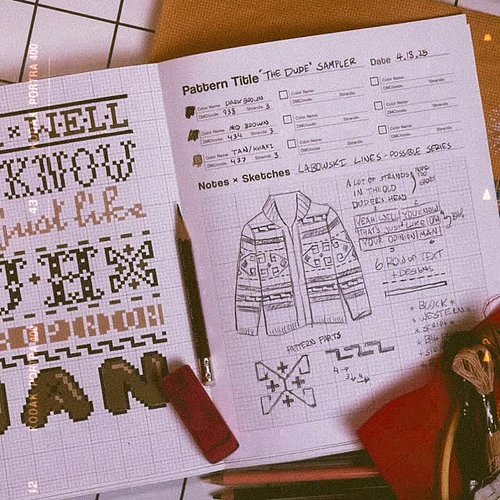 PORTRA 400
43
KODAK
12
× WELL
KNOW
just like
OPINION
MAN
Pattern Title "THE DUDE" SAMPLER
Date 4.13.23
Color Name: DARK BROWN
DMC/code: 938 Strands: 3
Color Name: MID BROWN
DMC/code: 434 Strands: 3
Color Name: TAN/KHAKI
DMC/code: 437 Strands: 3
Color Name:
DMC/code: Strands:
Color Name:
DMC/code: Strands:
Color Name:
DMC/code: Strands:
Color Name:
DMC/code: Strands:
Color Name:
DMC/code: Strands:
Color Name:
DMC/code: Strands:
Notes × Sketches LABOWSKI LINES - POSSIBLE SERIES
A LOT OF STRANDS
IN THE OLD
DUDERS HEAD
YEAH WELL YOU KNOW
THAT'S JUST LIKE UH
YOUR OPINION MAN
6 ROW OF TEXT
+ DESIGNS
PATTERN PARTS
+ BLOCK
+ WESTERN
+ SCRIPT